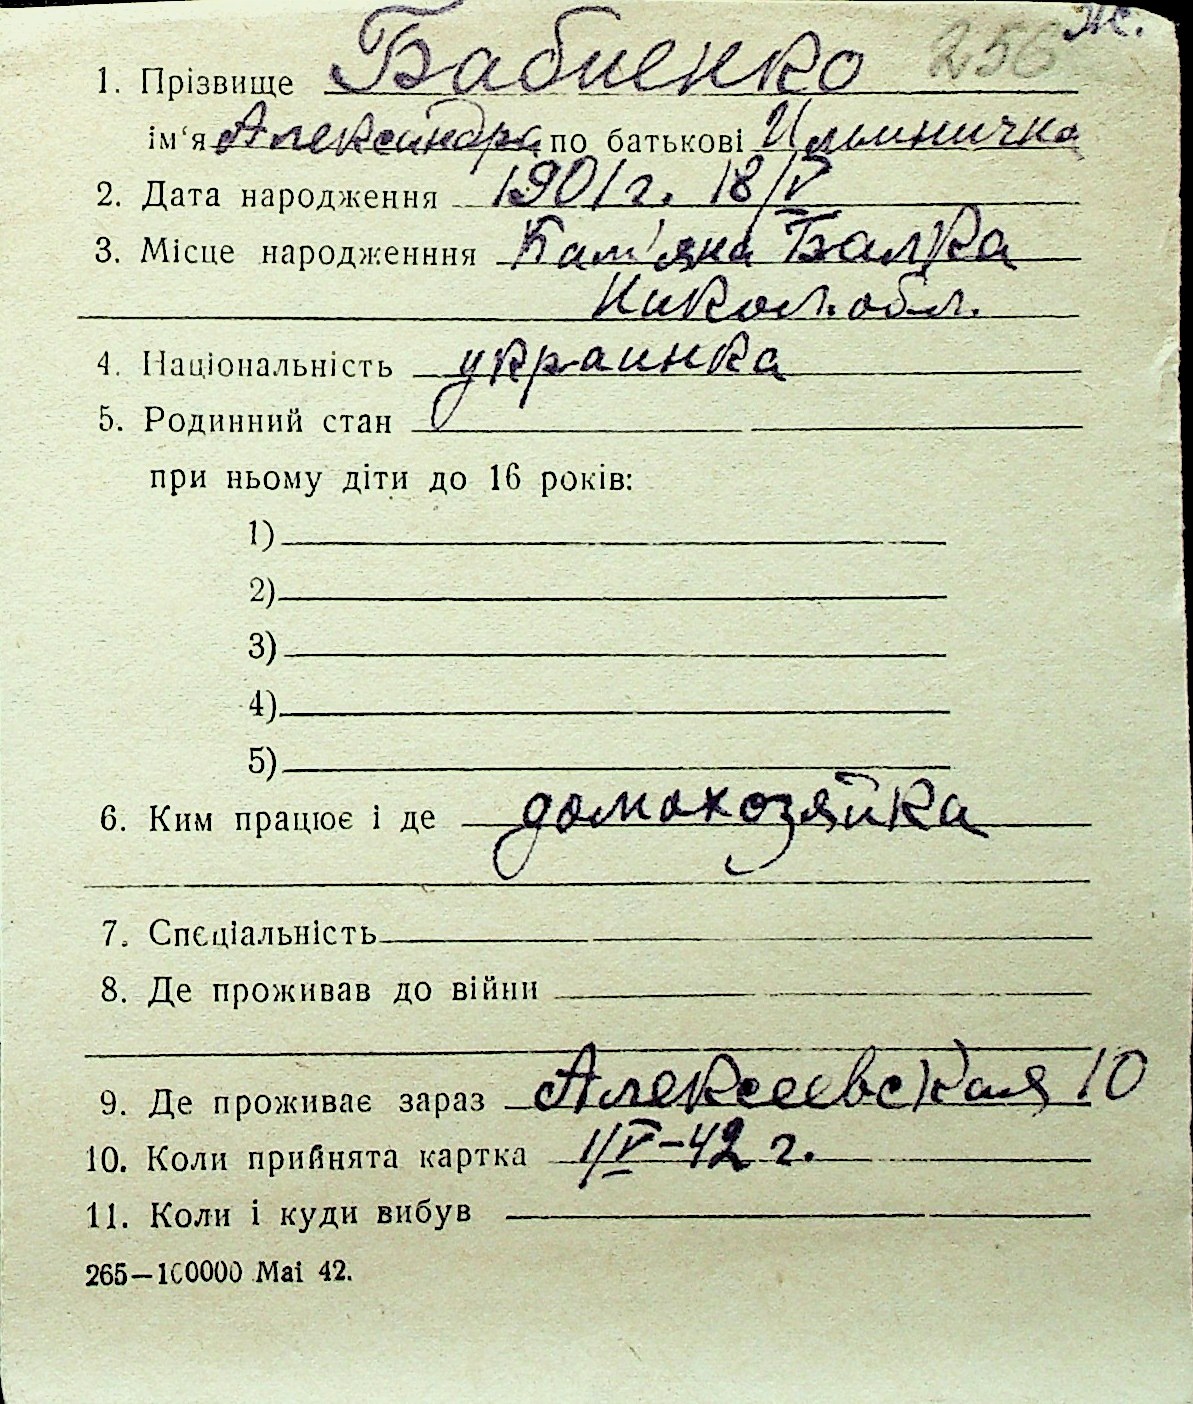 256 Ж.
1. Прізвище Бабиенко
ім'я Александра по батькові Ильинична
2. Дата народження 1901 г. 18/V
3. Місце народженння Кам'яна Балка
Никол. обл.
4. Національність украинка
5. Родинний стан
при ньому діти до 16 років:
1)
2)
3)
4)
5)
6. Ким працює і де домохозяйка
7. Спєціальність
8. Де проживав до війни
9. Де проживає зараз Алексеевская 10
10. Коли прийнята картка 1/V-42 г.
11. Коли і куди вибув
265—100000 Mai 42.